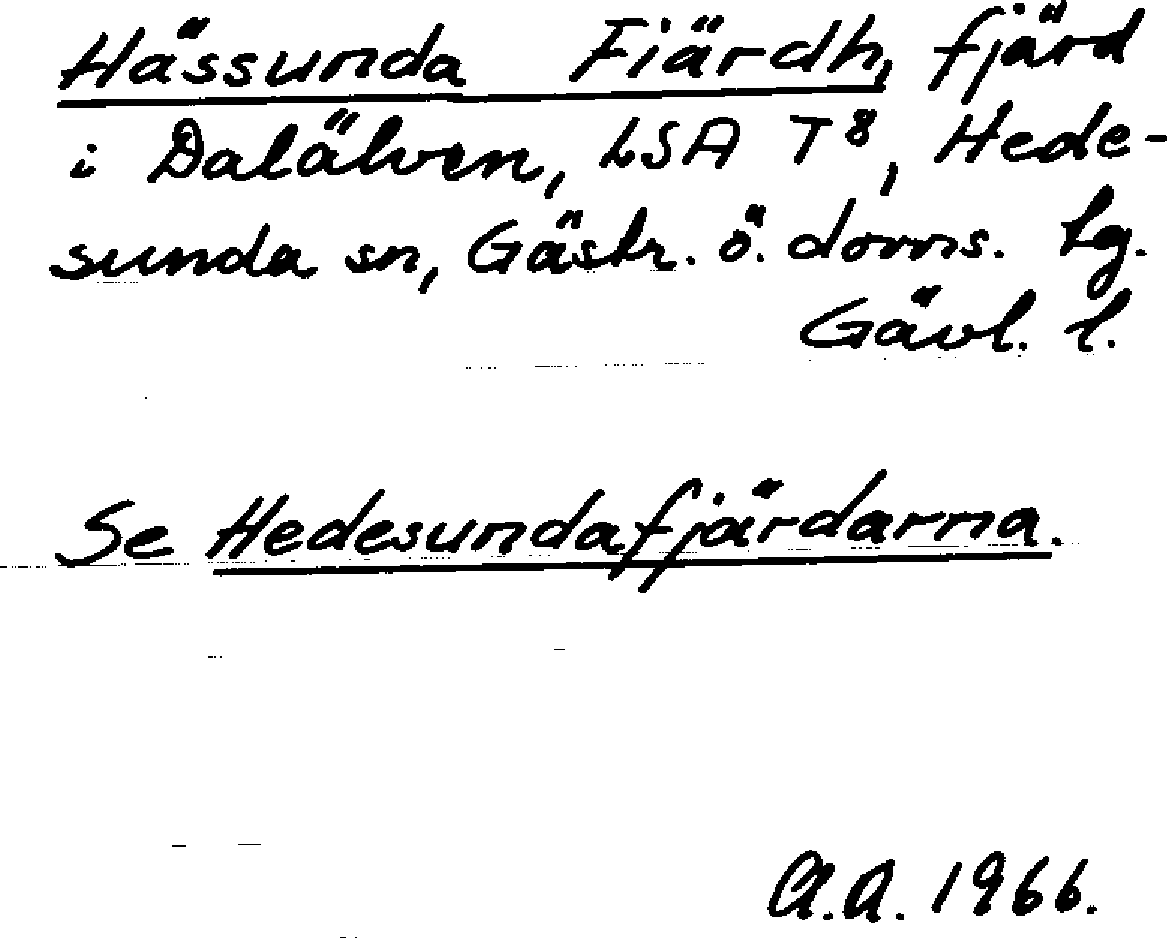 Hässunda Fiärdh, fjärd
i Dalälven, LSA T8, Hede-
sunda sn, Gästr. ö. doms. Lg.
Gävl. l.
Se Hedesundafjärdarna.
A.A. 1966.